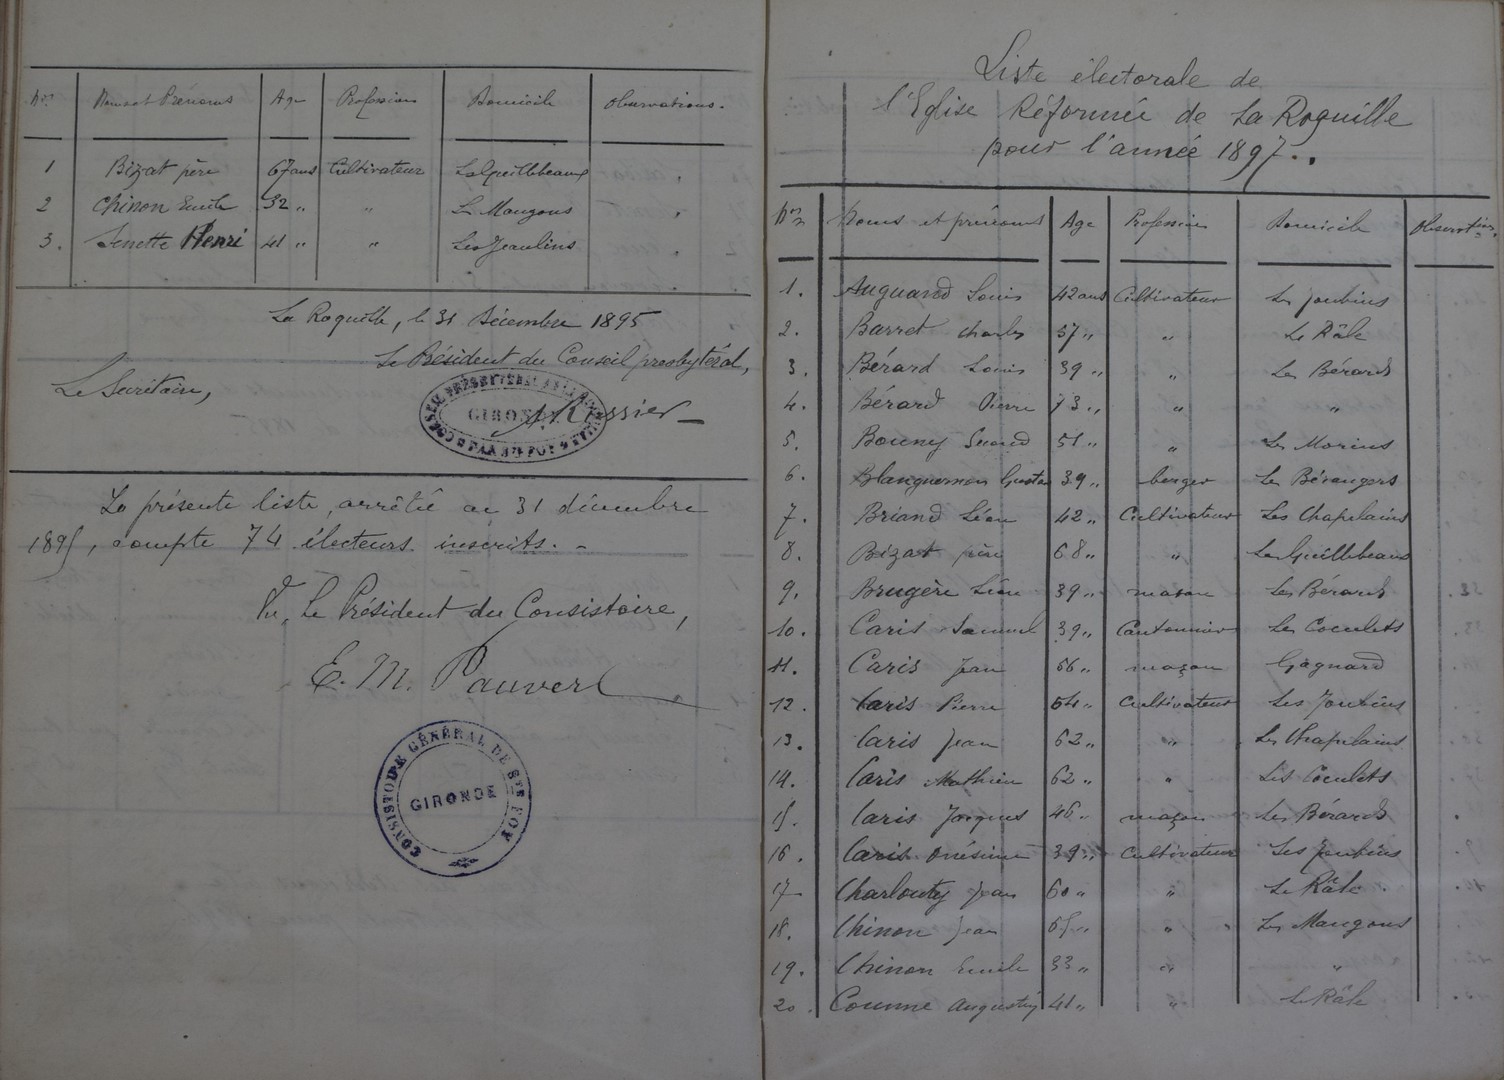 Nos Noms et Prénoms Age Profession Domicile Observations.
1 Bizat père 67 ans Cultivateur Les Guillebeaux
2 Chinon Emile 32 " " Les Mangons
3. Jenette Henri 41 " " Les Jeaulins
La Roquille, le 31 Décembre 1895
Le Président du Conseil presbytéral,
Le Secrétaire,
GIRONDE
La présente liste, arrêtée au 31 décembre
1895, compte 74 électeurs inscrits. -
Vu, Le Président du Consistoire,
E. M. Pauvert
CONSISTOIRE GÉNÉRAL DE STE FOY
GIRONDE
Liste électorale de
l'Eglise Réformée de La Roquille
pour l'année 1897..
Nos Noms et prénoms Age Profession Domicile Observations
1. Auguand Louis 42 ans Cultivateur Les Joubins
2. Barret Charles 37 " " Le Râle
3. Bérard Louis 39 " " Les Bérards
4. Bérard Pierre 73 " " "
5. Bouny 51 " " Les Morins
6. Blanquemon Gustave 39 " berger Les Bérangers
7. Briand Léon 42 " Cultivateur Les Chapelains
8. Bizat père 68 " " Les Guillebeaux
9. Brugère Léon 39 " maçon Les Bérards
10. Caris Samuel 39 " Cantonnier Les Coculets
11. Caris Jean 66 " maçon Gagnard
12. Caris Pierre 54 " Cultivateur Les Joubins
13. Caris Jean 62 " " Les Chapelains
14. Caris Mathieu 62 " " Les Coculets
15. Caris Jacques 46 " maçon Les Bérards
16. Caris Onésime 39 " Cultivateur Les Joubins
17 Charlouty Jean 60 " " Le Râle
18. Chinon Jean 65 " " Les Mangons
19. Chinon Emile 33 " " "
20. Coumme Augustin 41 " " Le Râle